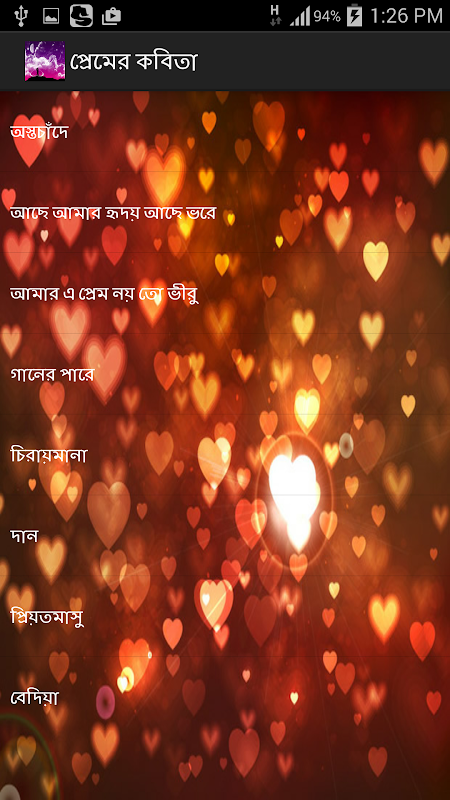 H 94% 1:26 PM
প্রেমের কবিতা
অস্তচাঁদে
আছে আমার হৃদয় আছে ভরে
আমার এ প্রেম নয় তো ভীরু
গানের পারে
চিরায়মানা
দান
প্রিয়তমাসু
বেদিয়া